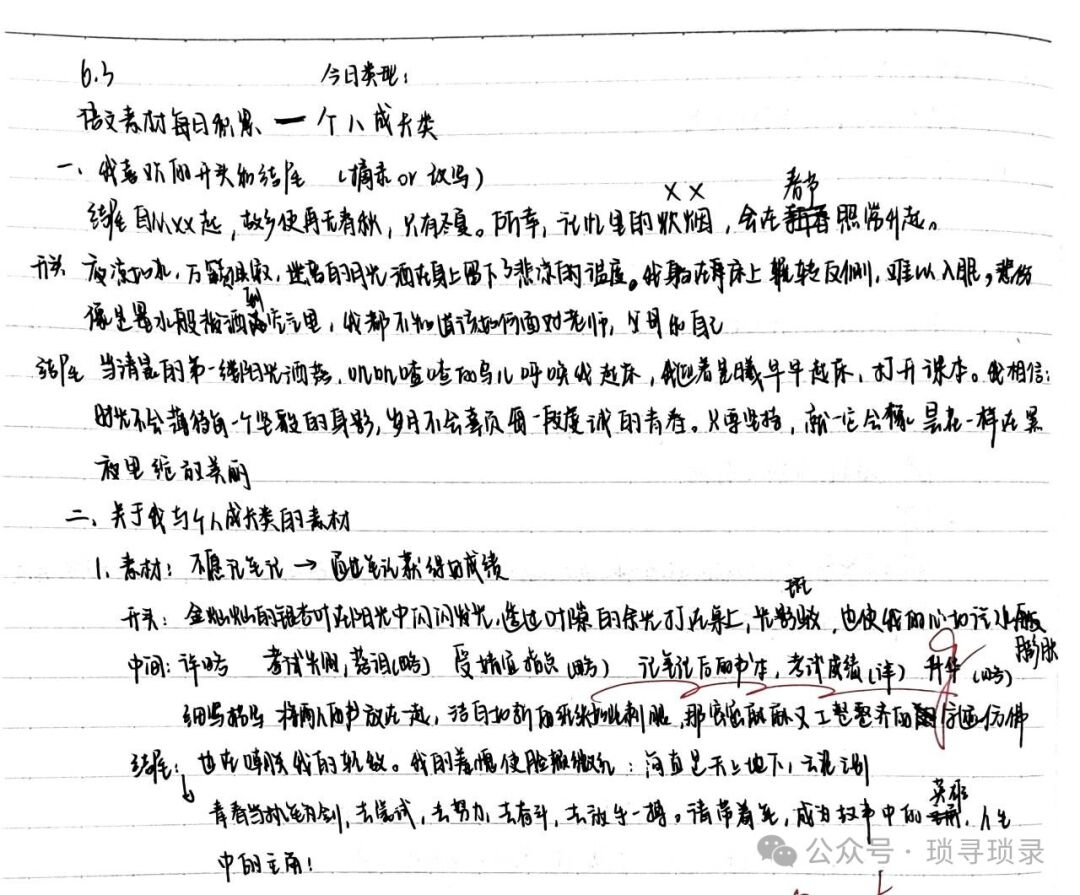 6.3 今日类型：
语文素材每日积累、一个人成长类
一、我喜欢的开头和结尾（摘录or改写）
×× 春节
结尾 自从××起，故乡便再无春秋，只有冬夏。所幸，记忆里的炊烟，会在新春照常升起。
开头 夜凉如水，万籁俱寂，迷离的月光洒在身上留下了悲凉的温度。我躺在床上辗转反侧，难以入眠，悲伤
像是墨水般泼洒到空气里，我都不知道该如何面对老师，父母和自己
结尾 当清晨的第一缕阳光洒落，叽叽喳喳的鸟儿呼唤我起床，我迎着晨曦早早起床，打开课本。我相信：
时光不会薄待每一个坚毅的身影，岁月不会辜负每一段虔诚的青春。只要坚持，就一定会像昙花一样在黑
夜里绽放美丽
二、关于我与个人成长类的素材
1、素材：不愿记笔记→通过笔记获得好成绩
斑
开头：金灿灿的银杏叶在阳光中闪闪发光，透过叶隙的余光打在桌上，光影驳，也使我的心如注水般
膨胀
中间：详略 考试失利，落泪（略） 受 指点（略） 记笔记后的书本，考试成绩（详） 升华（略）
细写描写 将两人的书放在一起，洁白如新的纸张如此刺眼，那密密麻麻又工整整齐的字迹仿佛
结尾： 也在嘲笑我的轻蔑。我的羞愧使脸颊微红：简直是天上地下，云泥之别
英雄
青春当执笔为剑，去尝试，去努力，去奋斗，去放手一搏。请带着光，成为故事中的，人生
中的主角！
公众号·琐寻琐录